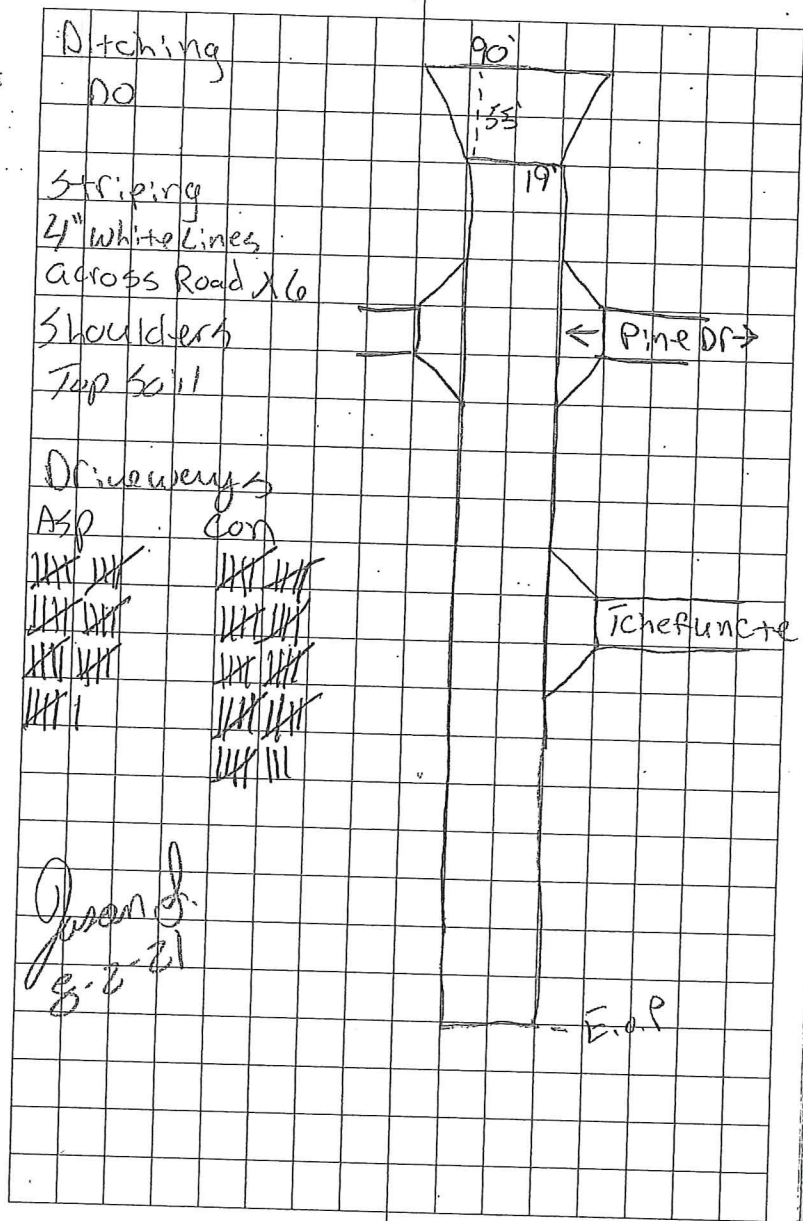 Ditching
DO
Striping
4" White Lines
across Road X6
Shoulders
Top Soil
Driveways
Asp Con
Jason S.
8-2-21
90'
55'
19'
← Pine Dr →
Tchefuncte
E.o.P